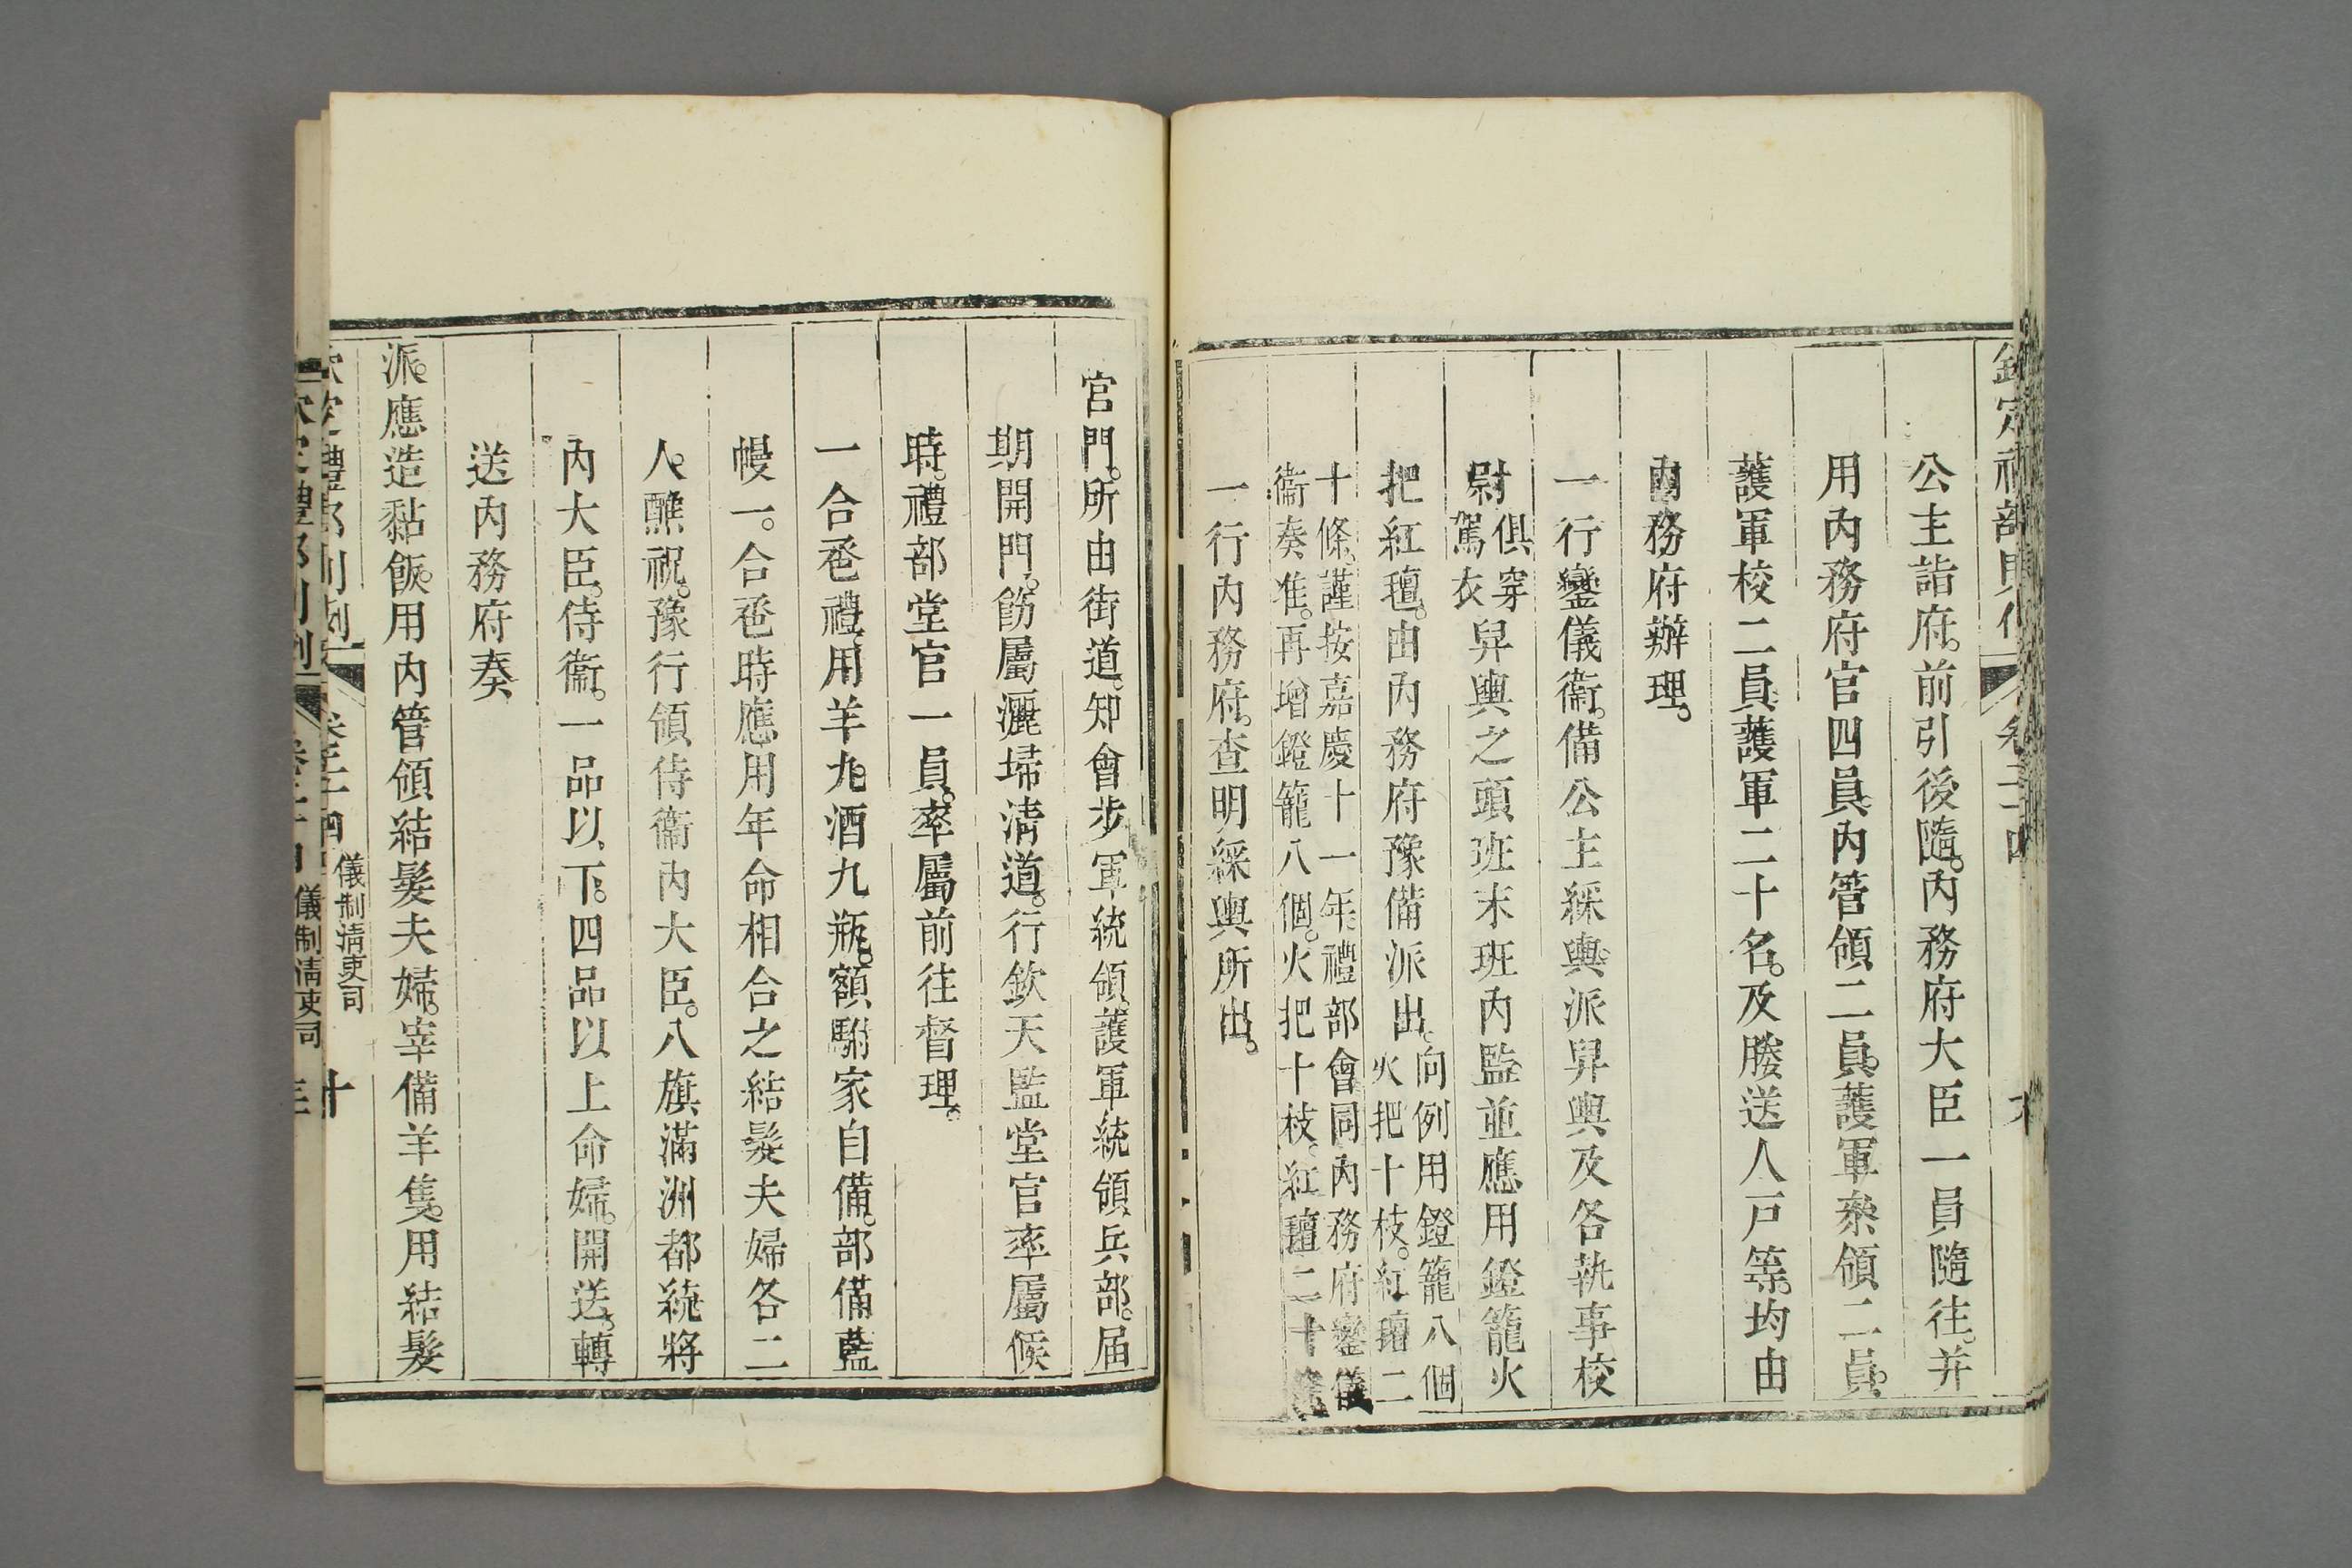 公主詣府。前引後隨。內務府大臣一員隨往。并
用內務府官四員。內管領二員。護軍叅領二員。
護軍校二員。護軍二十名。及媵送人戸等。均由
內務府辦理。
一行鑾儀衞。備公主綵輿。派舁輿及各執事校
尉俱穿駕衣舁輿之頭班末班內監並應用鐙籠火
把紅氊。由內務府豫備派出。向例用鐙籠八個火把十枝。紅氊二
十條。謹按嘉慶十一年。禮部會同內務府鑾儀
衞奏准。再增鐙籠八個。火把十枝。紅氊二十條
一行內務府。查明綵輿所出。
宮門。所由街道。知會步軍統領。護軍統領。兵部。届
期開門。飭屬灑埽清道。行欽天監堂官率屬候
時。禮部堂官一員。率屬前往督理。
一合卺禮。用羊九。酒九瓶。額駙家自備。部備藍
幔一。合卺時應用年命相合之結髮夫婦各二
人。醮祝。豫行領侍衞內大臣。八旗滿洲都統。將
內大臣。侍衞。一品以下。四品以上命婦。開送。轉
送內務府奏
派。應造黏飯。用內管領結髮夫婦。宰備羊隻。用結髮
儀制清吏司
十
儀制清吏司